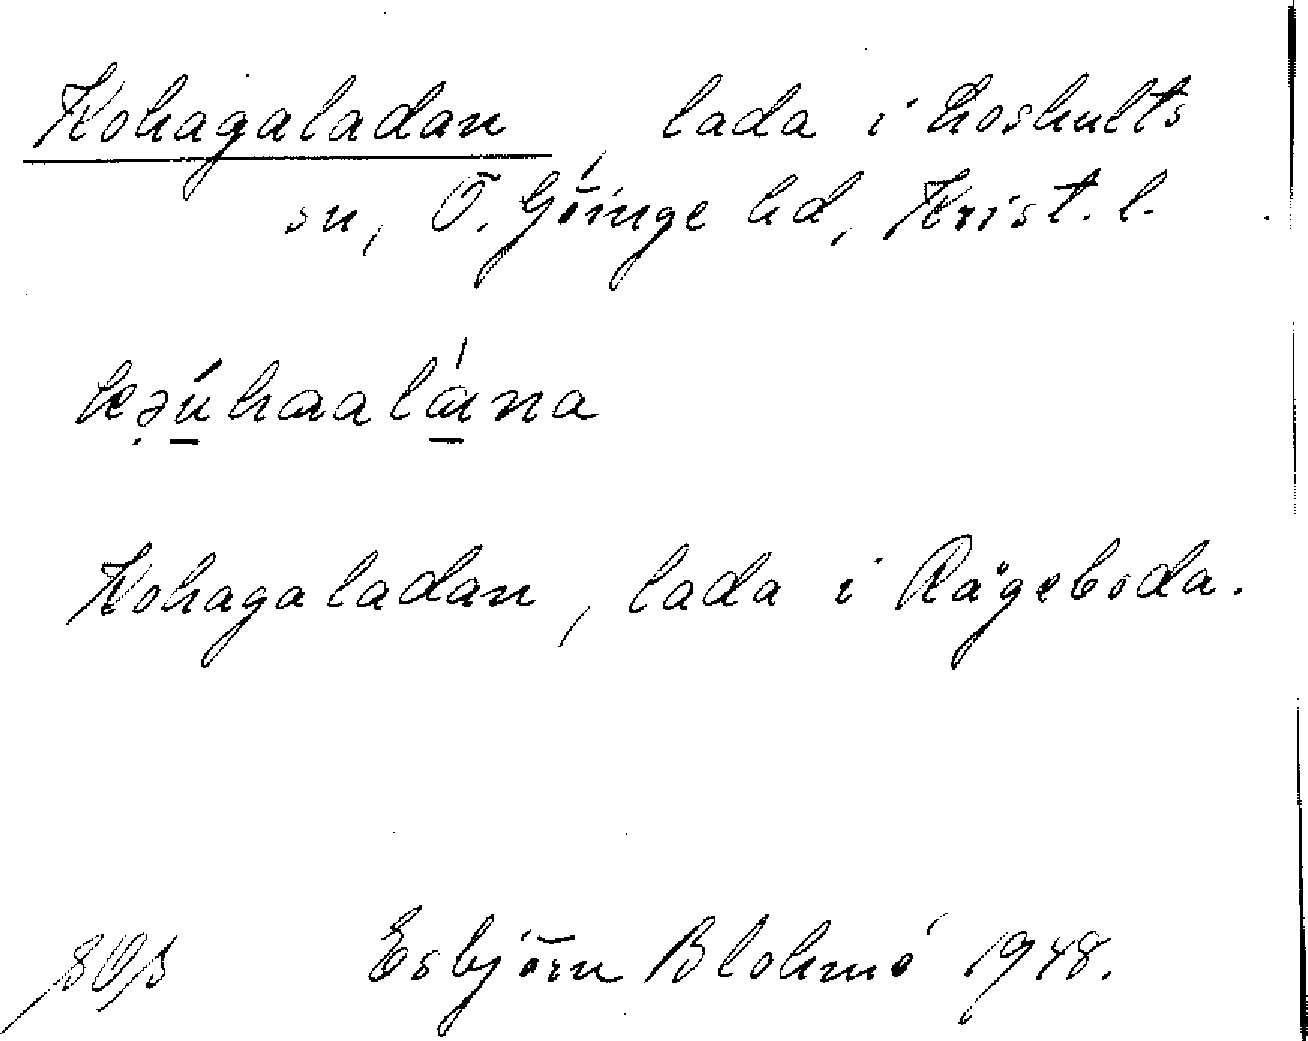 Kohagaladan, lada i Loshults
sn, Ö. Göinge hd, Krist. l.
kəúhaalána
Kohagaladan, lada i Rågeboda.
Esbjörn Blohmé 1948.